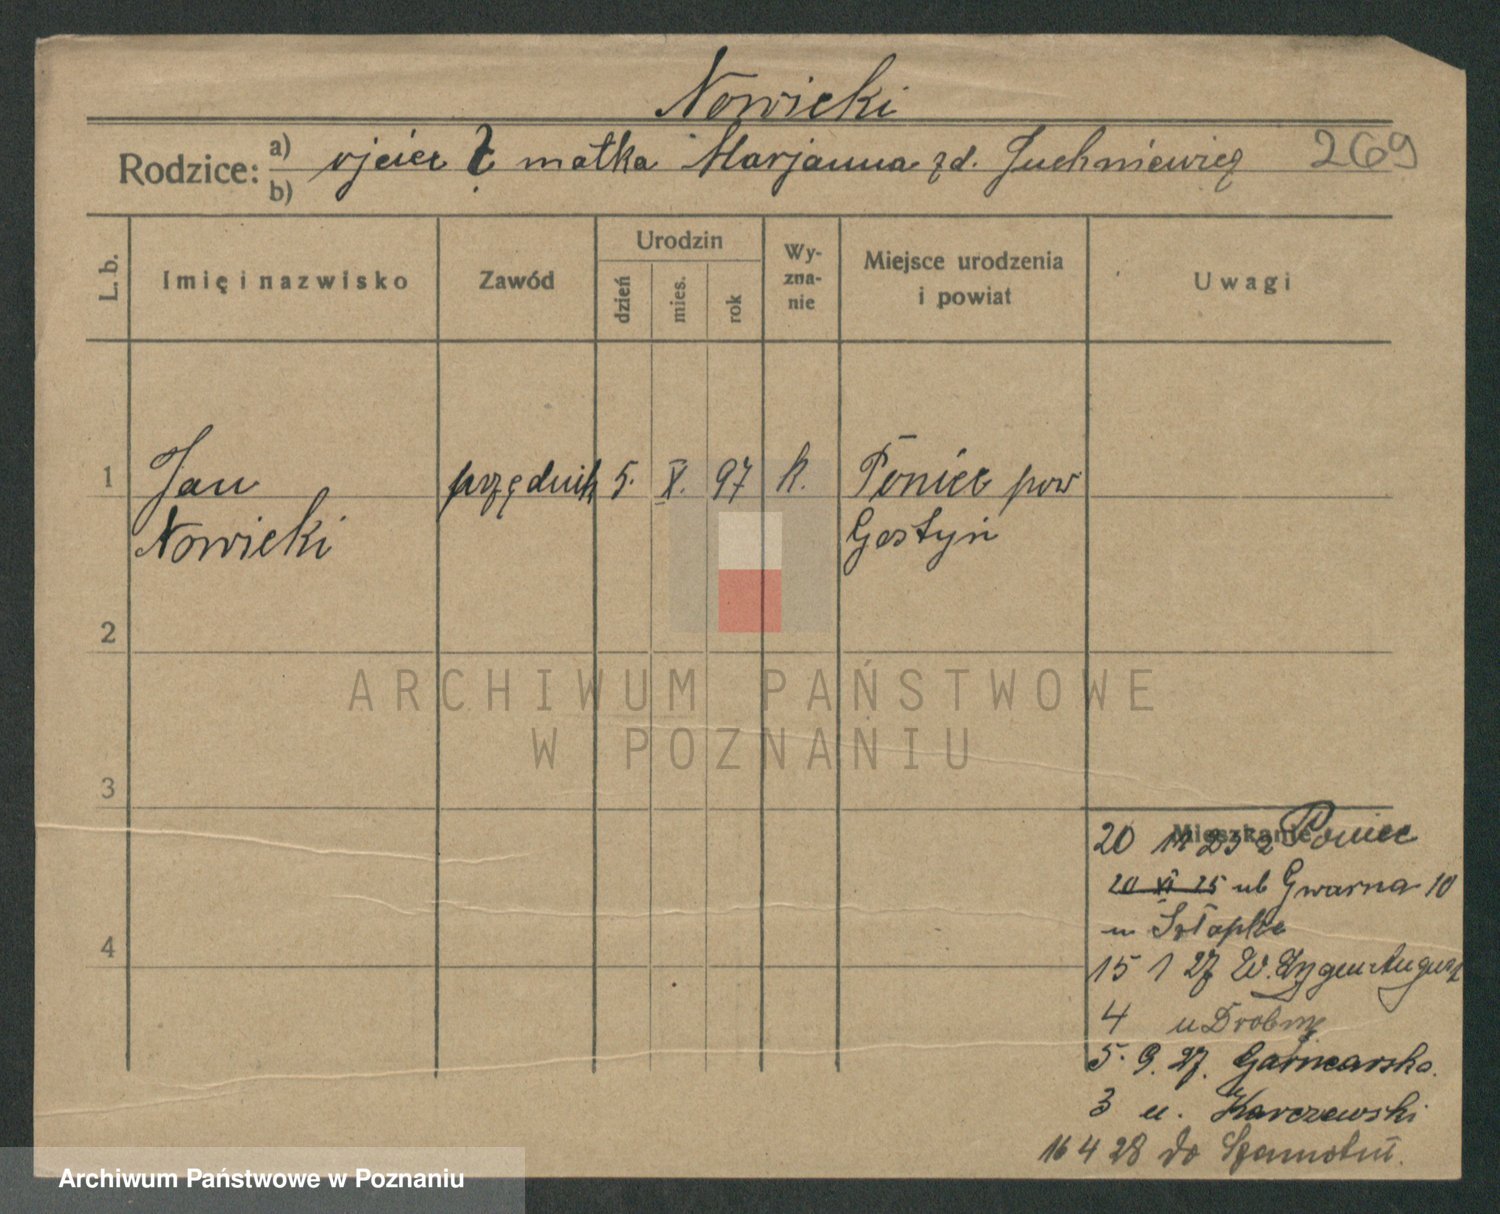 Nowicki
Rodzice: a) ojciec ? matka Marjanna zd. Juchniewicz 269
b)
L.b. Imię i nazwisko Zawód Urodzin dzień mies. rok Wyznanie Miejsce urodzenia i powiat Uwagi
1 Jan Nowicki 5. X. 97 k. Poniec pow Gostyń
2
3
4
Mieszkanie
20 11 25 z Poniec
20 XI 25 ul Gwarna 10
u Sztapke
15 1 27 W.
4 u
5. 9. 27. Garncarska.
3 u. Karczewski
16 4 28 do Szamotuł.
ARCHIWUM PAŃSTWOWE
W POZNANIU
Archiwum Państwowe w Poznaniu